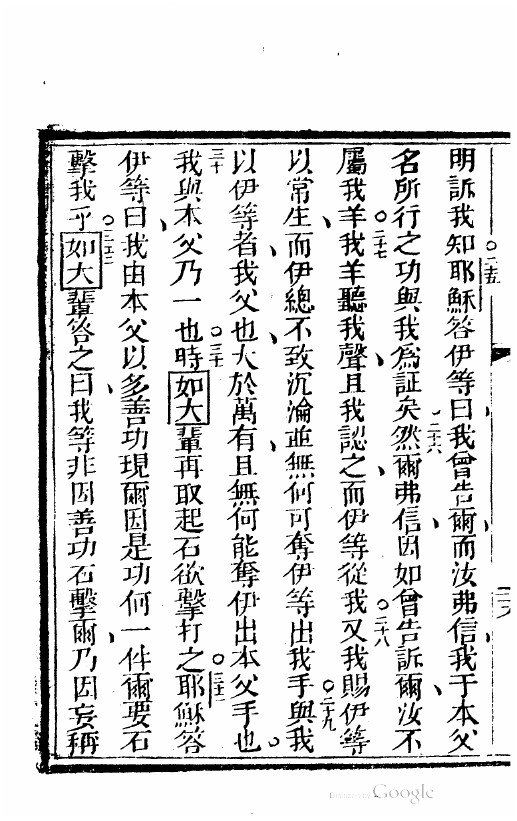 明訴我知耶穌答伊等曰我曾告爾而汝弗信我于本父
名所行之功與我為証矣然爾弗信因如曾告訴爾汝不
屬我羊我羊聽我聲且我認之而伊等從我又我賜伊等
以常生而伊總不致沉淪並無何可奪伊等出我手與我
以伊等者我父也大於萬有且無何能奪伊出本父手也
我與本父乃一也時如大輩再取起石欲擊打之耶穌答
伊等曰我由本父以多善功現爾因是功何一件爾要石
擊我乎如大輩答之曰我等非因善功石擊爾乃因妄稱
二十五
二十六
二十七
二十八
二十九
三十
三十一
三十二
三十三
Digitized by Google